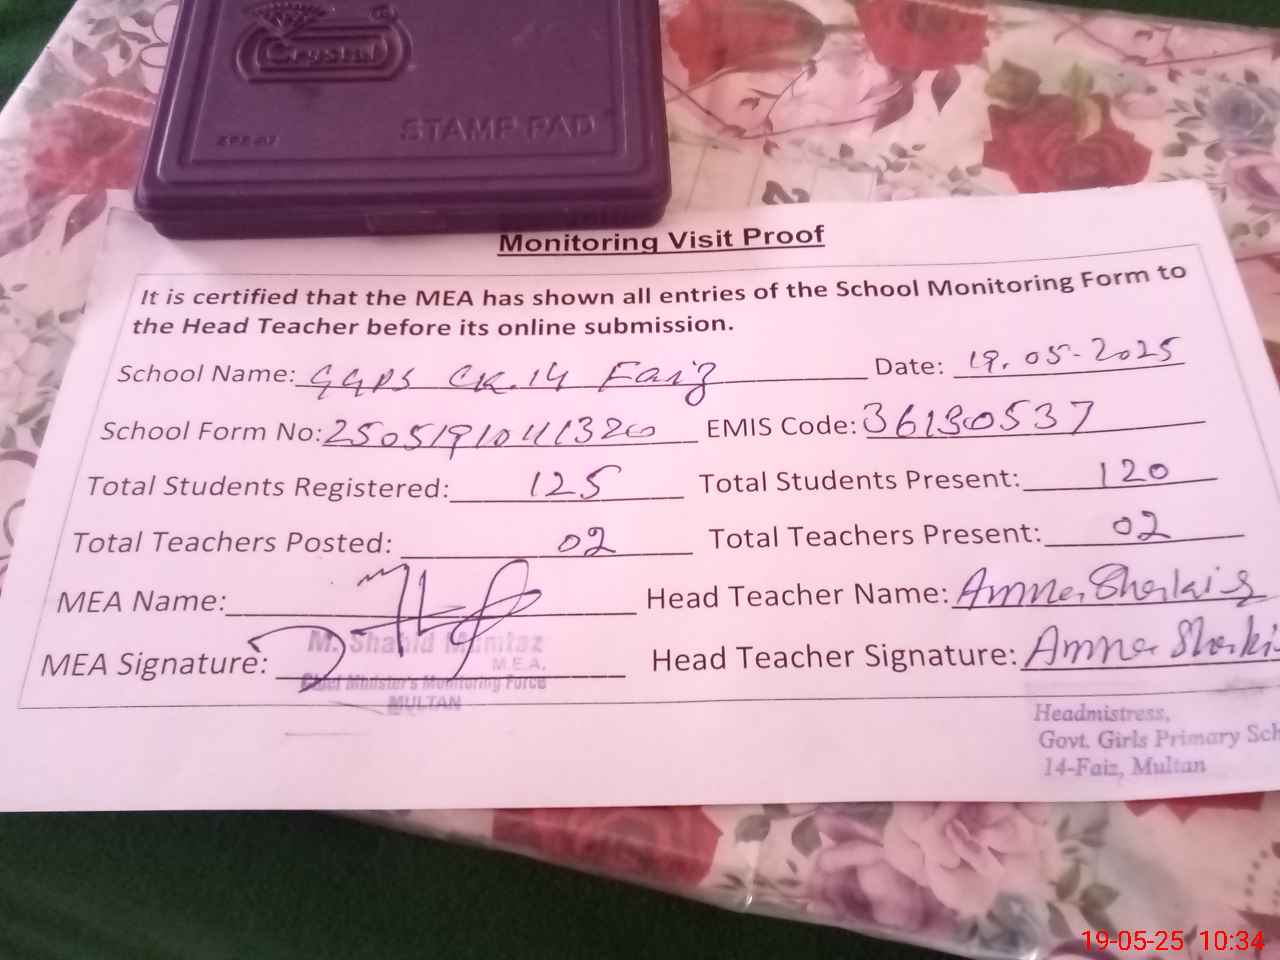 Crystal
STAMP PAD
Monitoring Visit Proof
It is certified that the MEA has shown all entries of the School Monitoring Form to
the Head Teacher before its online submission.
School Name: GGPS CK.14 Faiz Date: 19.05-2025
School Form No: EMIS Code: 36130537
Total Students Registered: 125 Total Students Present: 120
Total Teachers Posted: 02 Total Teachers Present: 02
MEA Name: Head Teacher Name: Amna
MEA Signature: Head Teacher Signature: Amna
M. Shahid Mumtaz
M.E.A.
Chief Minister's Monitoring Force
MULTAN
Headmistress,
Govt. Girls Primary Sch
14-Faiz, Multan
19-05-25 10:34